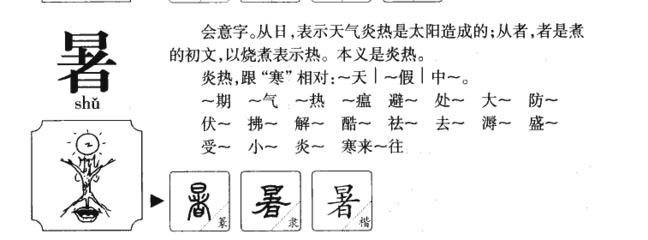 暑
shǔ
会意字。从日,表示天气炎热是太阳造成的;从者,者是煮
的初文,以烧煮表示热。本义是炎热。
炎热,跟“寒”相对:～天｜～假｜中～。
～期 ～气 ～热 ～瘟 避～ 处～ 大～ 防～
伏～ 拂～ 解～ 酷～ 祛～ 去～ 溽～ 盛～
受～ 小～ 炎～ 寒来～往
暑 篆
暑 隶
暑 楷